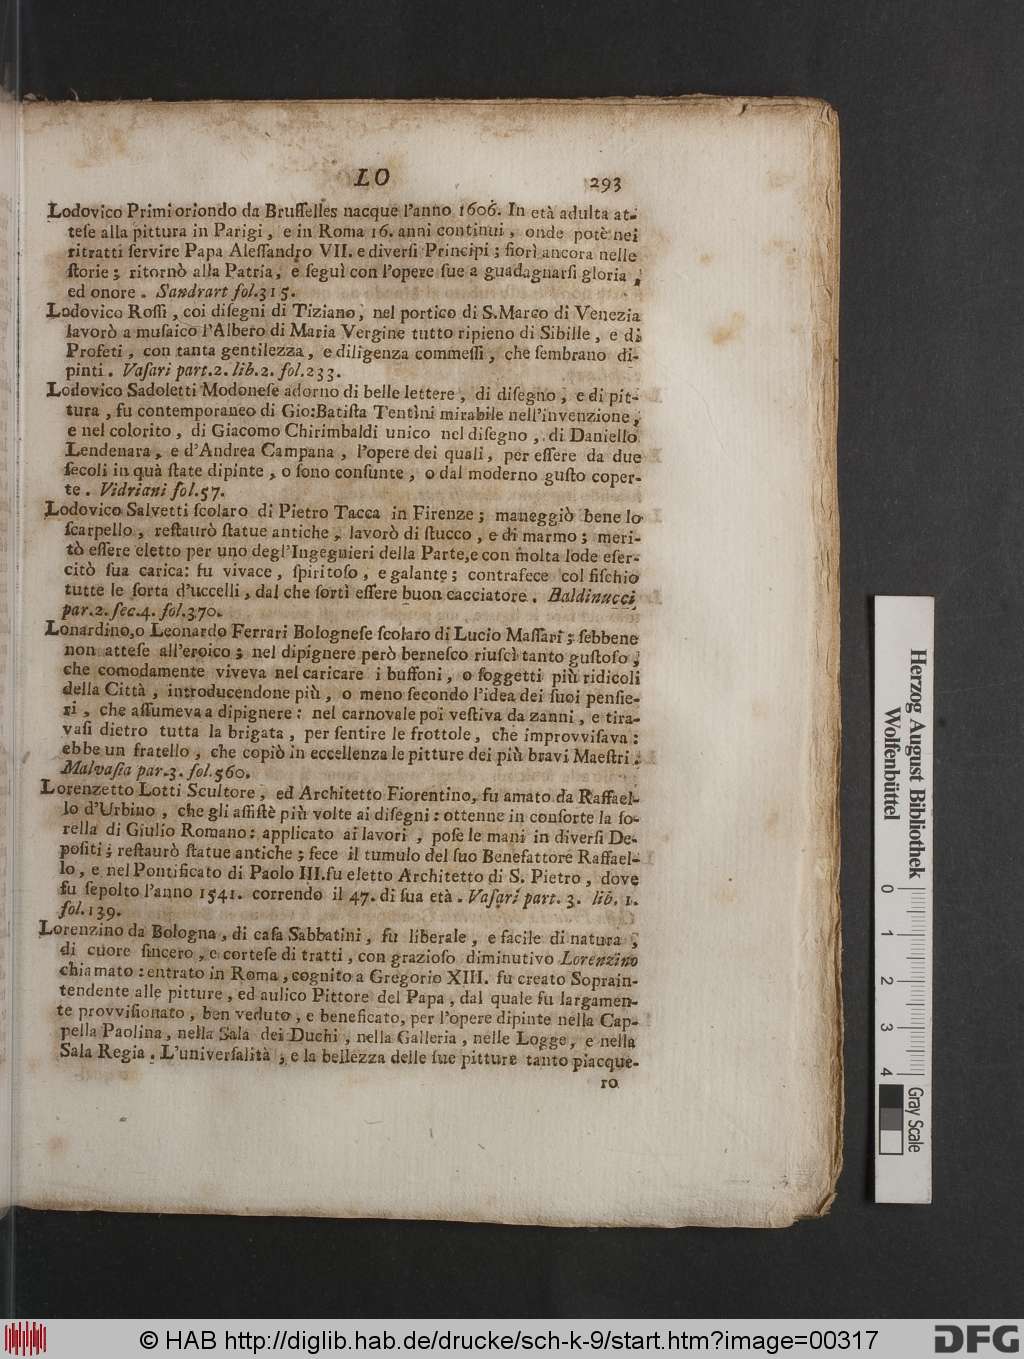 LO 293
Lodovico Primi oriondo da Bruſſelles nacque l'anno 1606. In età adulta at-
teſe alla pittura in Parigi, e in Roma 16. anni continui, onde potè nei
ritratti ſervire Papa Aleſſandro VII. e diverſi Principi; fiorì ancora nelle
ſtorie; ritornò alla Patria, e ſeguì con l'opere ſue a guadagnarſi gloria,
ed onore. Sandrart fol.315.
Lodovico Roſſi, coi diſegni di Tiziano, nel portico di S.Marco di Venezia
lavorò a muſaico l'Albero di Maria Vergine tutto ripieno di Sibille, e di
Profeti, con tanta gentilezza, e diligenza commeſſi, che ſembrano di-
pinti. Vaſari part.2. lib.2. fol.233.
Lodovico Sadoletti Modoneſe adorno di belle lettere, di diſegno, e di pit-
tura, fu contemporaneo di Gio:Batiſta Tentini mirabile nell'invenzione,
e nel colorito, di Giacomo Chirimbaldi unico nel diſegno, di Daniello
Lendenara, e d'Andrea Campana, l'opere dei quali, per eſſere da due
ſecoli in quà ſtate dipinte, o ſono conſunte, o dal moderno guſto coper-
te. Vidriani fol.57.
Lodovico Salvetti ſcolaro di Pietro Tacca in Firenze; maneggiò bene lo
ſcarpello, reſtaurò ſtatue antiche, lavorò di ſtucco, e di marmo; meri-
tò eſſere eletto per uno degl'Ingegnieri della Parte,e con molta lode eſer-
citò ſua carica: fu vivace, ſpiritoſo, e galante; contrafece col fiſchio
tutte le ſorta d'uccelli, dal che ſortì eſſere buon cacciatore. Baldinucci
par.2. ſec.4. fol.370.
Lonardino,o Leonardo Ferrari Bologneſe ſcolaro di Lucio Maſſari; ſebbene
non atteſe all'eroico; nel dipignere però berneſco riuſcì tanto guſtoſo,
che comodamente viveva nel caricare i buffoni, o ſoggetti più ridicoli
della Città, introducendone più, o meno ſecondo l'idea dei ſuoi penſie-
ri, che aſſumeva a dipignere: nel carnovale poi veſtiva da zanni, e tira-
vaſi dietro tutta la brigata, per ſentire le frottole, che improvviſava:
ebbe un fratello, che copiò in eccellenza le pitture dei più bravi Maeſtri.
Malvaſia par.3. fol.560.
Lorenzetto Lotti Scultore, ed Architetto Fiorentino, fu amato da Raffael-
lo d'Urbino, che gli aſſiſtè più volte ai diſegni: ottenne in conſorte la ſo-
rella di Giulio Romano: applicato ai lavori, poſe le mani in diverſi De-
poſiti; reſtaurò ſtatue antiche; fece il tumulo del ſuo Benefattore Raffael-
lo, e nel Pontificato di Paolo III.fu eletto Architetto di S. Pietro, dove
fu ſepolto l'anno 1541. correndo il 47. di ſua età. Vaſari part. 3. lib. 1.
fol.139.
Lorenzino da Bologna, di caſa Sabbatini, fu liberale, e facile di natura,
di cuore ſincero, e corteſe di tratti, con grazioſo diminutivo Lorenzino
chiamato: entrato in Roma, cognito a Gregorio XIII. fu creato Soprain-
tendente alle pitture, ed aulico Pittore del Papa, dal quale fu largamen-
te provviſionato, ben veduto, e beneficato, per l'opere dipinte nella Cap-
pella Paolina, nella Sala dei Duchi, nella Galleria, nelle Logge, e nella
Sala Regia. L'univerſalità, e la bellezza delle ſue pitture tanto piacque-
ro
Herzog August Bibliothek
Wolfenbüttel
0 1 2 3 4
Gray Scale
© HAB http://diglib.hab.de/drucke/sch-k-9/start.htm?image=00317
DFG